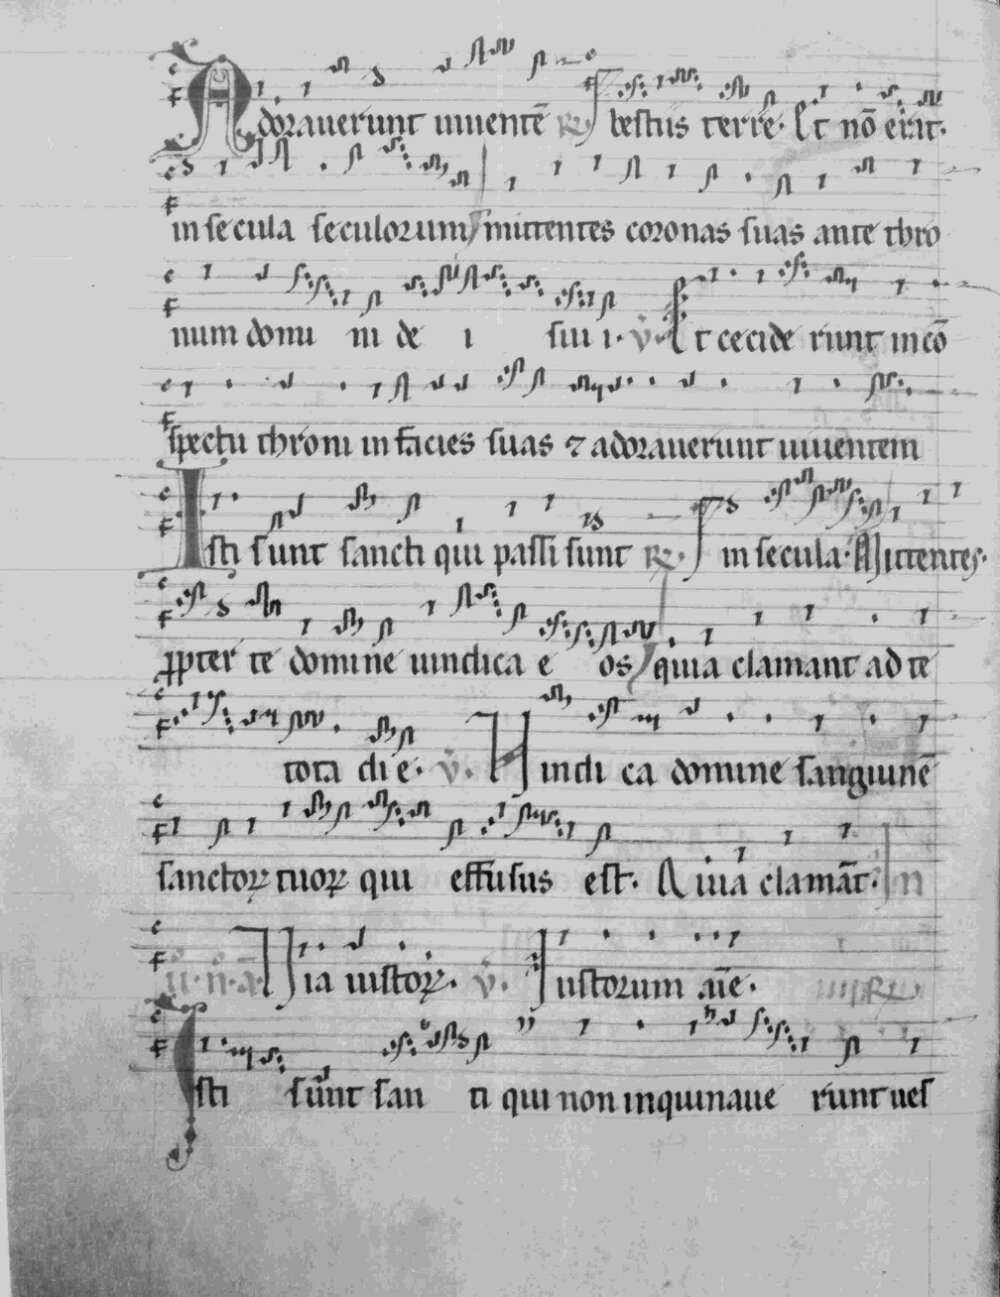 Adorauerunt uiuentē R bestiis terre. Et nō erit.
in secula seculorum mittentes coronas suas ante thro
num domi ni de i sui i. V. Et cecide runt in cō
spectu throni in facies suas ⁊ adorauerunt uiuentem
Isti sunt sancti qui passi sunt R. in secula. Mittentes.
ꝓpter te domine uindica e os quia clamant ad te
tota di e. V. Uindi ca domine sanguinē
sanctoꝝ tuoꝝ qui effusus est. Quia clamāt. In
Via iustoꝝ. V. Iustorum aīe.
Isti sunt san ti qui non inquinaue runt ues